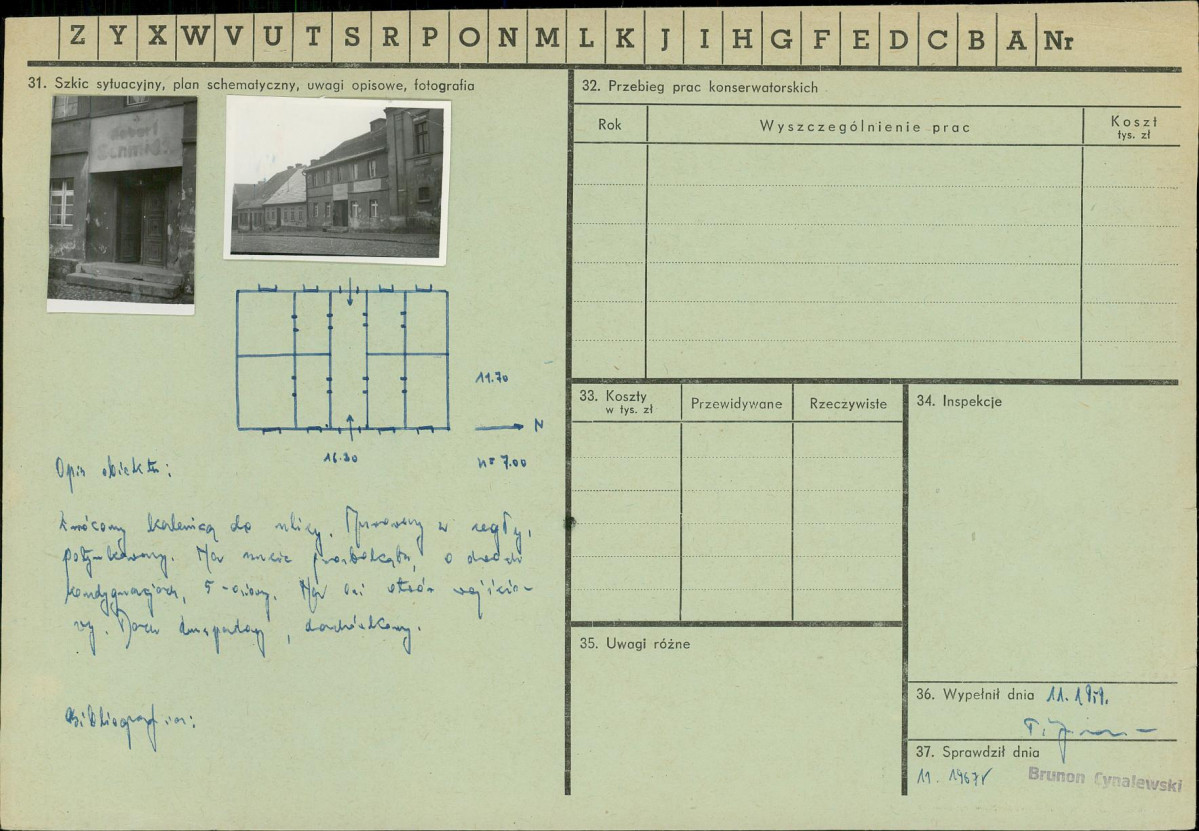 Z Y X W V U T S R P O N M L K J I H G F E D C B A Nr
31. Szkic sytuacyjny, plan schematyczny, uwagi opisowe, fotografia
Schmidt
11.70
N
16.30
h= 7.00
Opis obiektu:
Zwrócony kalenicą do ulicy. Murowany z cegły,
potynkowany. Na rzucie prostokąta, o dwóch
kondygnacjach, 5-osiowy. Na osi otwór wejścio-
wy. Dach dwuspadowy, dachówkowy.
Bibliografia:
32. Przebieg prac konserwatorskich
Rok
Wyszczególnienie prac
Koszt
tys. zł
33. Koszty
w tys. zł
Przewidywane
Rzeczywiste
34. Inspekcje
35. Uwagi różne
36. Wypełnił dnia 11. 1959.
37. Sprawdził dnia
11. 1967r
Brunon Cynalewski